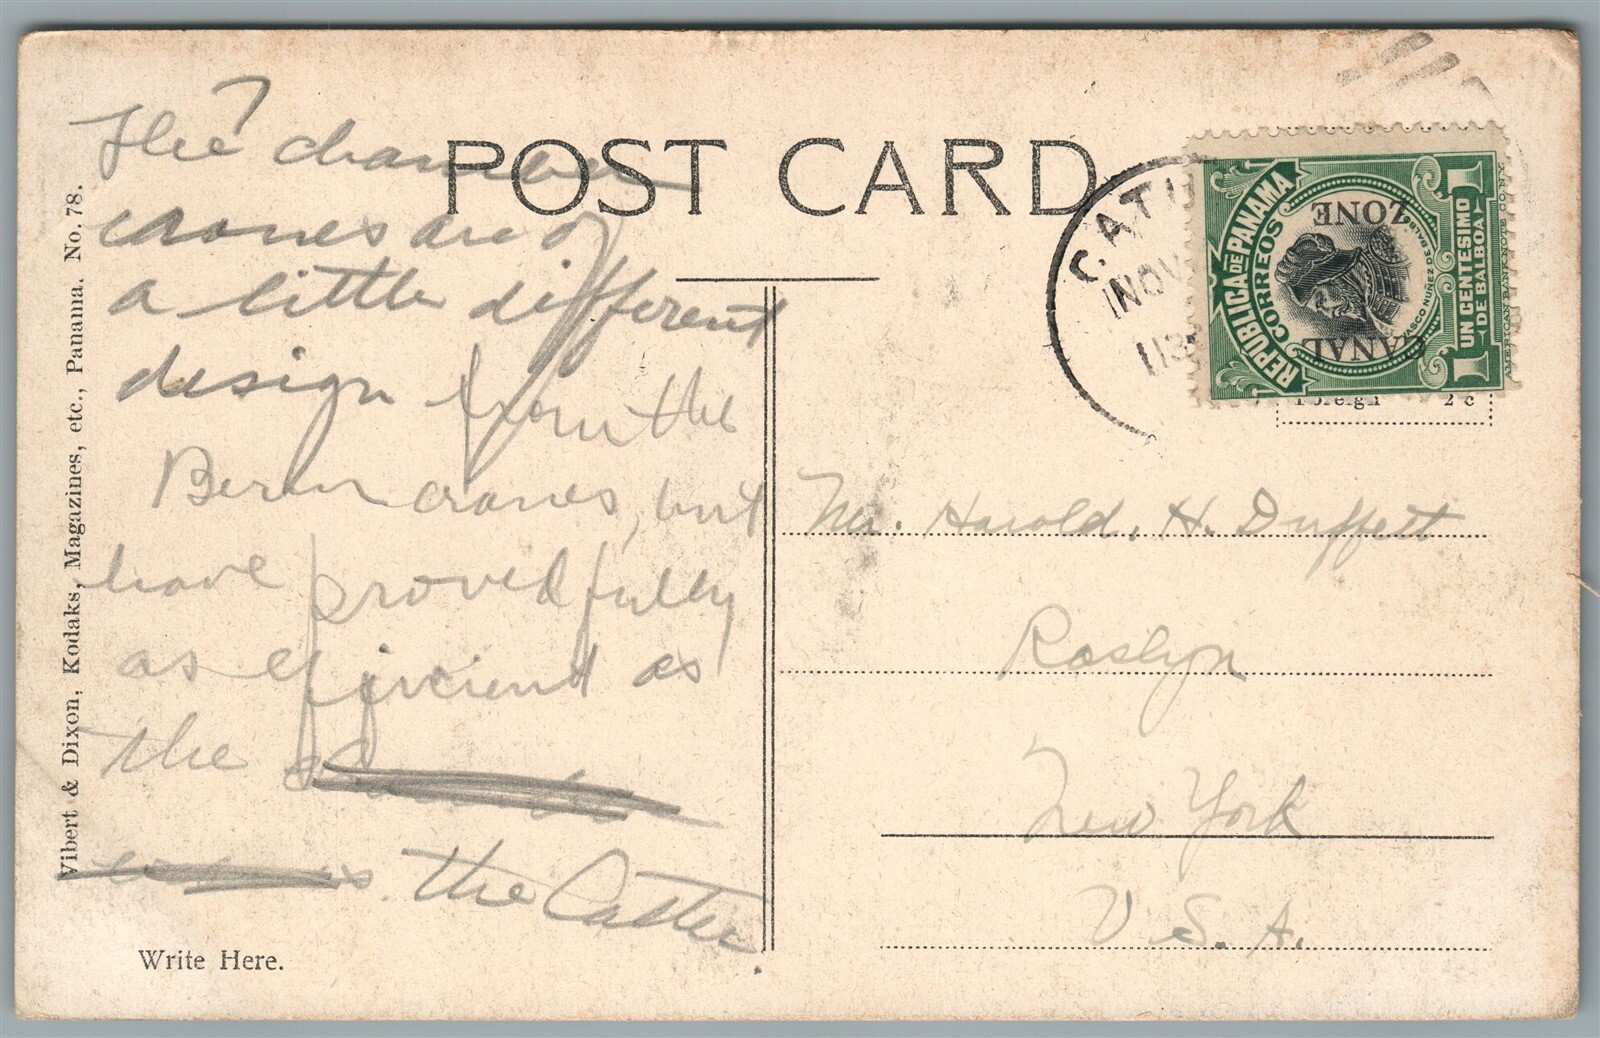 The chamber
cranes are of
a little different
design from the
Berm cranes, but
have proved fully
as efficient as
the
the
POST CARD
Vibert & Dixon, Kodaks, Magazines, etc., Panama. No. 78.
Write Here.
C. ATU
NOV
REPUBLICA DE PANAMA
CORREOS
CANAL
ZONE
VASCO NUÑEZ DE BALBOA
1 UN CENTESIMO 1
DE BALBOA
AMERICAN BANK NOTE CO. N.Y.
Foreign 2c
Mr. Harold, H. Duffett
Roslyn
New York
U.S.A.